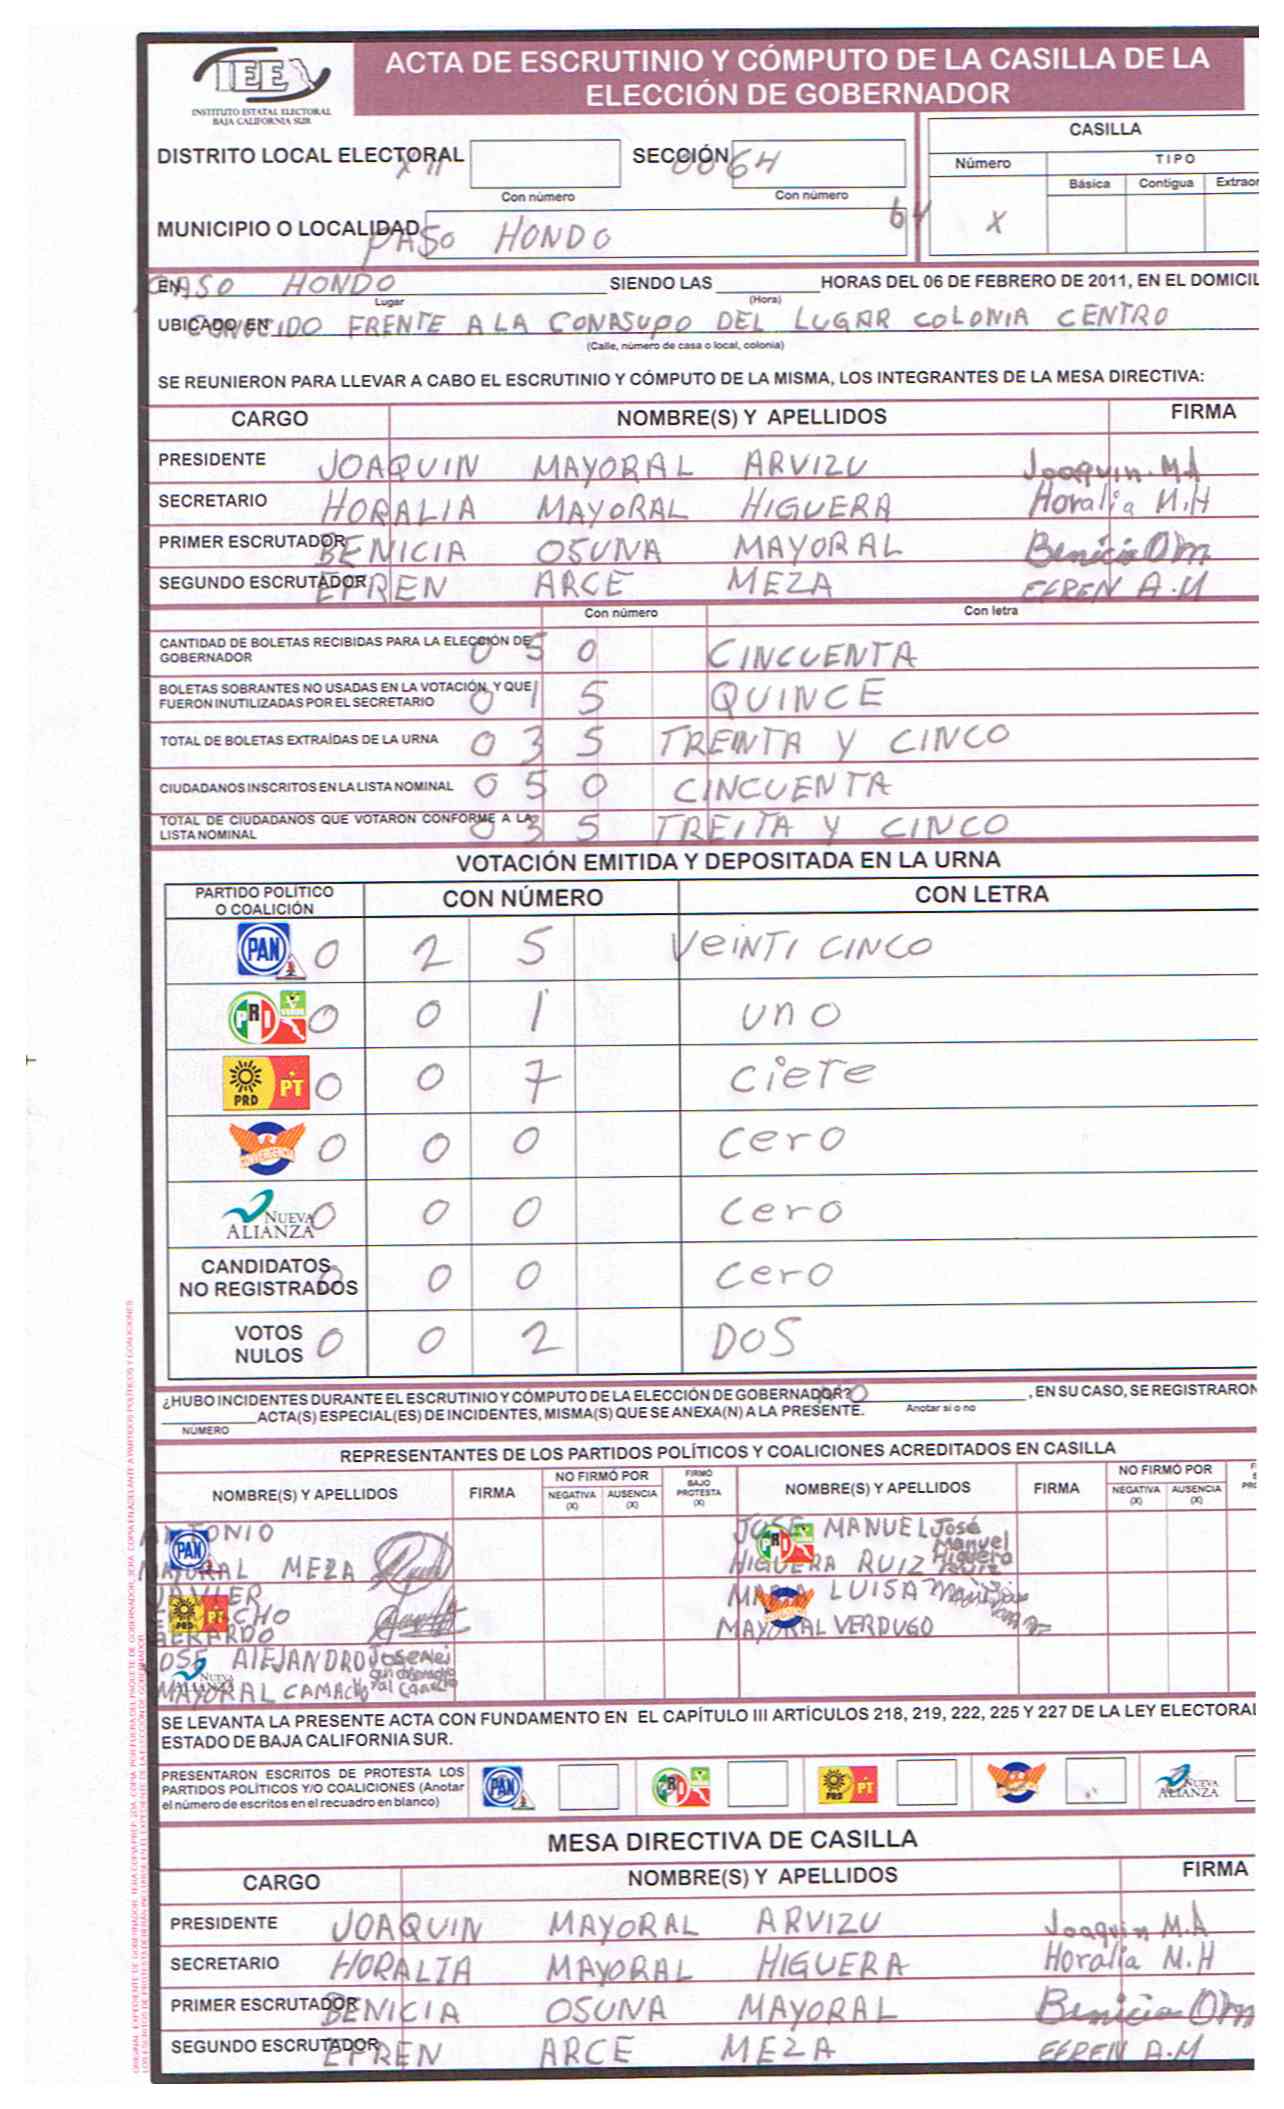 IEE
INSTITUTO ESTATAL ELECTORAL
BAJA CALIFORNIA SUR
ACTA DE ESCRUTINIO Y CÓMPUTO DE LA CASILLA DE LA
ELECCIÓN DE GOBERNADOR
DISTRITO LOCAL ELECTORAL XII
Con número
SECCIÓN 0064
Con número
64
MUNICIPIO O LOCALIDAD PASO HONDO
CASILLA
Número X
TIPO
Básica Contigua
EN PASO HONDO SIENDO LAS HORAS DEL 06 DE FEBRERO DE 2011, EN EL DOMICIL
Lugar (Hora)
UBICADO EN CONOCIDO FRENTE A LA CONASUPO DEL LUGAR COLONIA CENTRO
(Calle, número de casa o local, colonia)
SE REUNIERON PARA LLEVAR A CABO EL ESCRUTINIO Y CÓMPUTO DE LA MISMA, LOS INTEGRANTES DE LA MESA DIRECTIVA:
CARGO NOMBRE(S) Y APELLIDOS FIRMA
PRESIDENTE JOAQUIN MAYORAL ARVIZU Joaquin M.A
SECRETARIO HORALIA MAYORAL HIGUERA Horalia M.H
PRIMER ESCRUTADOR BENICIA OSUNA MAYORAL Benicia Om
SEGUNDO ESCRUTADOR EFREN ARCE MEZA EFREN A.M
Con número Con letra
CANTIDAD DE BOLETAS RECIBIDAS PARA LA ELECCIÓN DE
GOBERNADOR 0 5 0 CINCUENTA
BOLETAS SOBRANTES NO USADAS EN LA VOTACIÓN, Y QUE
FUERON INUTILIZADAS POR EL SECRETARIO 0 1 5 QUINCE
TOTAL DE BOLETAS EXTRAÍDAS DE LA URNA 0 3 5 TREINTA Y CINCO
CIUDADANOS INSCRITOS EN LA LISTA NOMINAL 0 5 0 CINCUENTA
TOTAL DE CIUDADANOS QUE VOTARON CONFORME A LA
LISTA NOMINAL 0 3 5 TREITA Y CINCO
VOTACIÓN EMITIDA Y DEPOSITADA EN LA URNA
PARTIDO POLÍTICO
O COALICIÓN CON NÚMERO CON LETRA
PAN 0 2 5 VeiNTI CINCO
PRI VERDE 0 0 1 uno
PRD PT 0 0 7 cieTe
CONVERGENCIA 0 0 0 cero
NUEVA
ALIANZA 0 0 0 cero
CANDIDATOS
NO REGISTRADOS 0 0 0 cero
VOTOS
NULOS 0 0 2 DOS
¿HUBO INCIDENTES DURANTE EL ESCRUTINIO Y CÓMPUTO DE LA ELECCIÓN DE GOBERNADOR? NO , EN SU CASO, SE REGISTRARON
Anotar si o no
ACTA(S) ESPECIAL(ES) DE INCIDENTES, MISMA(S) QUE SE ANEXA(N) A LA PRESENTE.
NÚMERO
REPRESENTANTES DE LOS PARTIDOS POLÍTICOS Y COALICIONES ACREDITADOS EN CASILLA
NOMBRE(S) Y APELLIDOS FIRMA NO FIRMÓ POR NEGATIVA (X) AUSENCIA (X) FIRMÓ BAJO PROTESTA (X) NOMBRE(S) Y APELLIDOS FIRMA NO FIRMÓ POR NEGATIVA (X) AUSENCIA (X)
PAN ANTONIO
MAYORAL MEZA
PRI JOSE MANUEL José Manuel
HIGUERA RUIZ Higuera Ruiz
PRD PT JAVIER
GERARDO
MARIA LUISA
MAYORAL VERDUGO
NUEVA ALIANZA JOSE ALEJANDRO
MAYORAL CAMACHO
SE LEVANTA LA PRESENTE ACTA CON FUNDAMENTO EN EL CAPÍTULO III ARTÍCULOS 218, 219, 222, 225 Y 227 DE LA LEY ELECTORAL
ESTADO DE BAJA CALIFORNIA SUR.
PRESENTARON ESCRITOS DE PROTESTA LOS
PARTIDOS POLÍTICOS Y/O COALICIONES (Anotar
el número de escritos en el recuadro en blanco)
PAN PRI PRD PT NUEVA ALIANZA
MESA DIRECTIVA DE CASILLA
CARGO NOMBRE(S) Y APELLIDOS FIRMA
PRESIDENTE JOAQUIN MAYORAL ARVIZU Joaquin M.A
SECRETARIO HORALIA MAYORAL HIGUERA Horalia M.H
PRIMER ESCRUTADOR BENICIA OSUNA MAYORAL Benicia Om
SEGUNDO ESCRUTADOR EFREN ARCE MEZA EFREN A.M